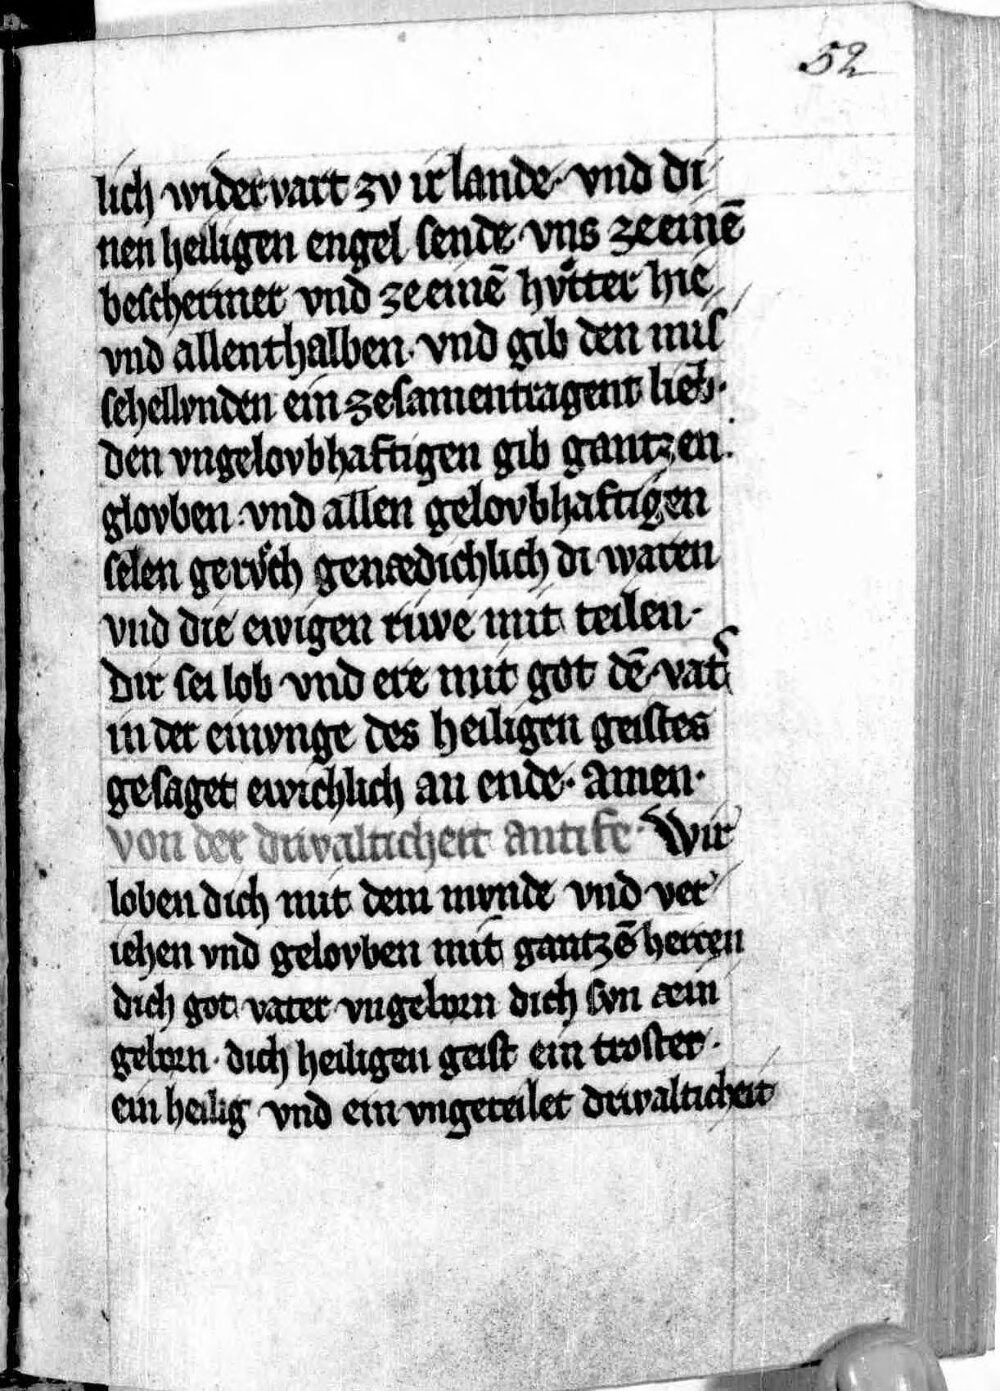 52
lich widervart zv ir lande· vnd di
nen heiligen engel sende vns ze einē
beschermer vnd ze einē hv̊tter hie
vnd allenthalben· vnd gib den mis
sehellvnden ein zesamentragent lieb·
den vngelovbhaftigen gib gantzen
glovben· vnd allen gelovbhaftigen
selen gerv̊ch genædichlich di waren
vnd die ewigen růwe mit teilen·
Dir sei lob vnd ere mit got dē vat͛
in der einvnge des heiligen geistes
gesaget ewichlich an ende· amen·
Von der drivalticheit antife· Wir
loben dich mit dem mvnde vnd ver
iehen vnd gelovben mit gantzē hercen
dich got vater vngeborn dich svn æin
geborn· dich heiligen geist ein troster·
ein heilig vnd ein vngeteilet drivalticheit